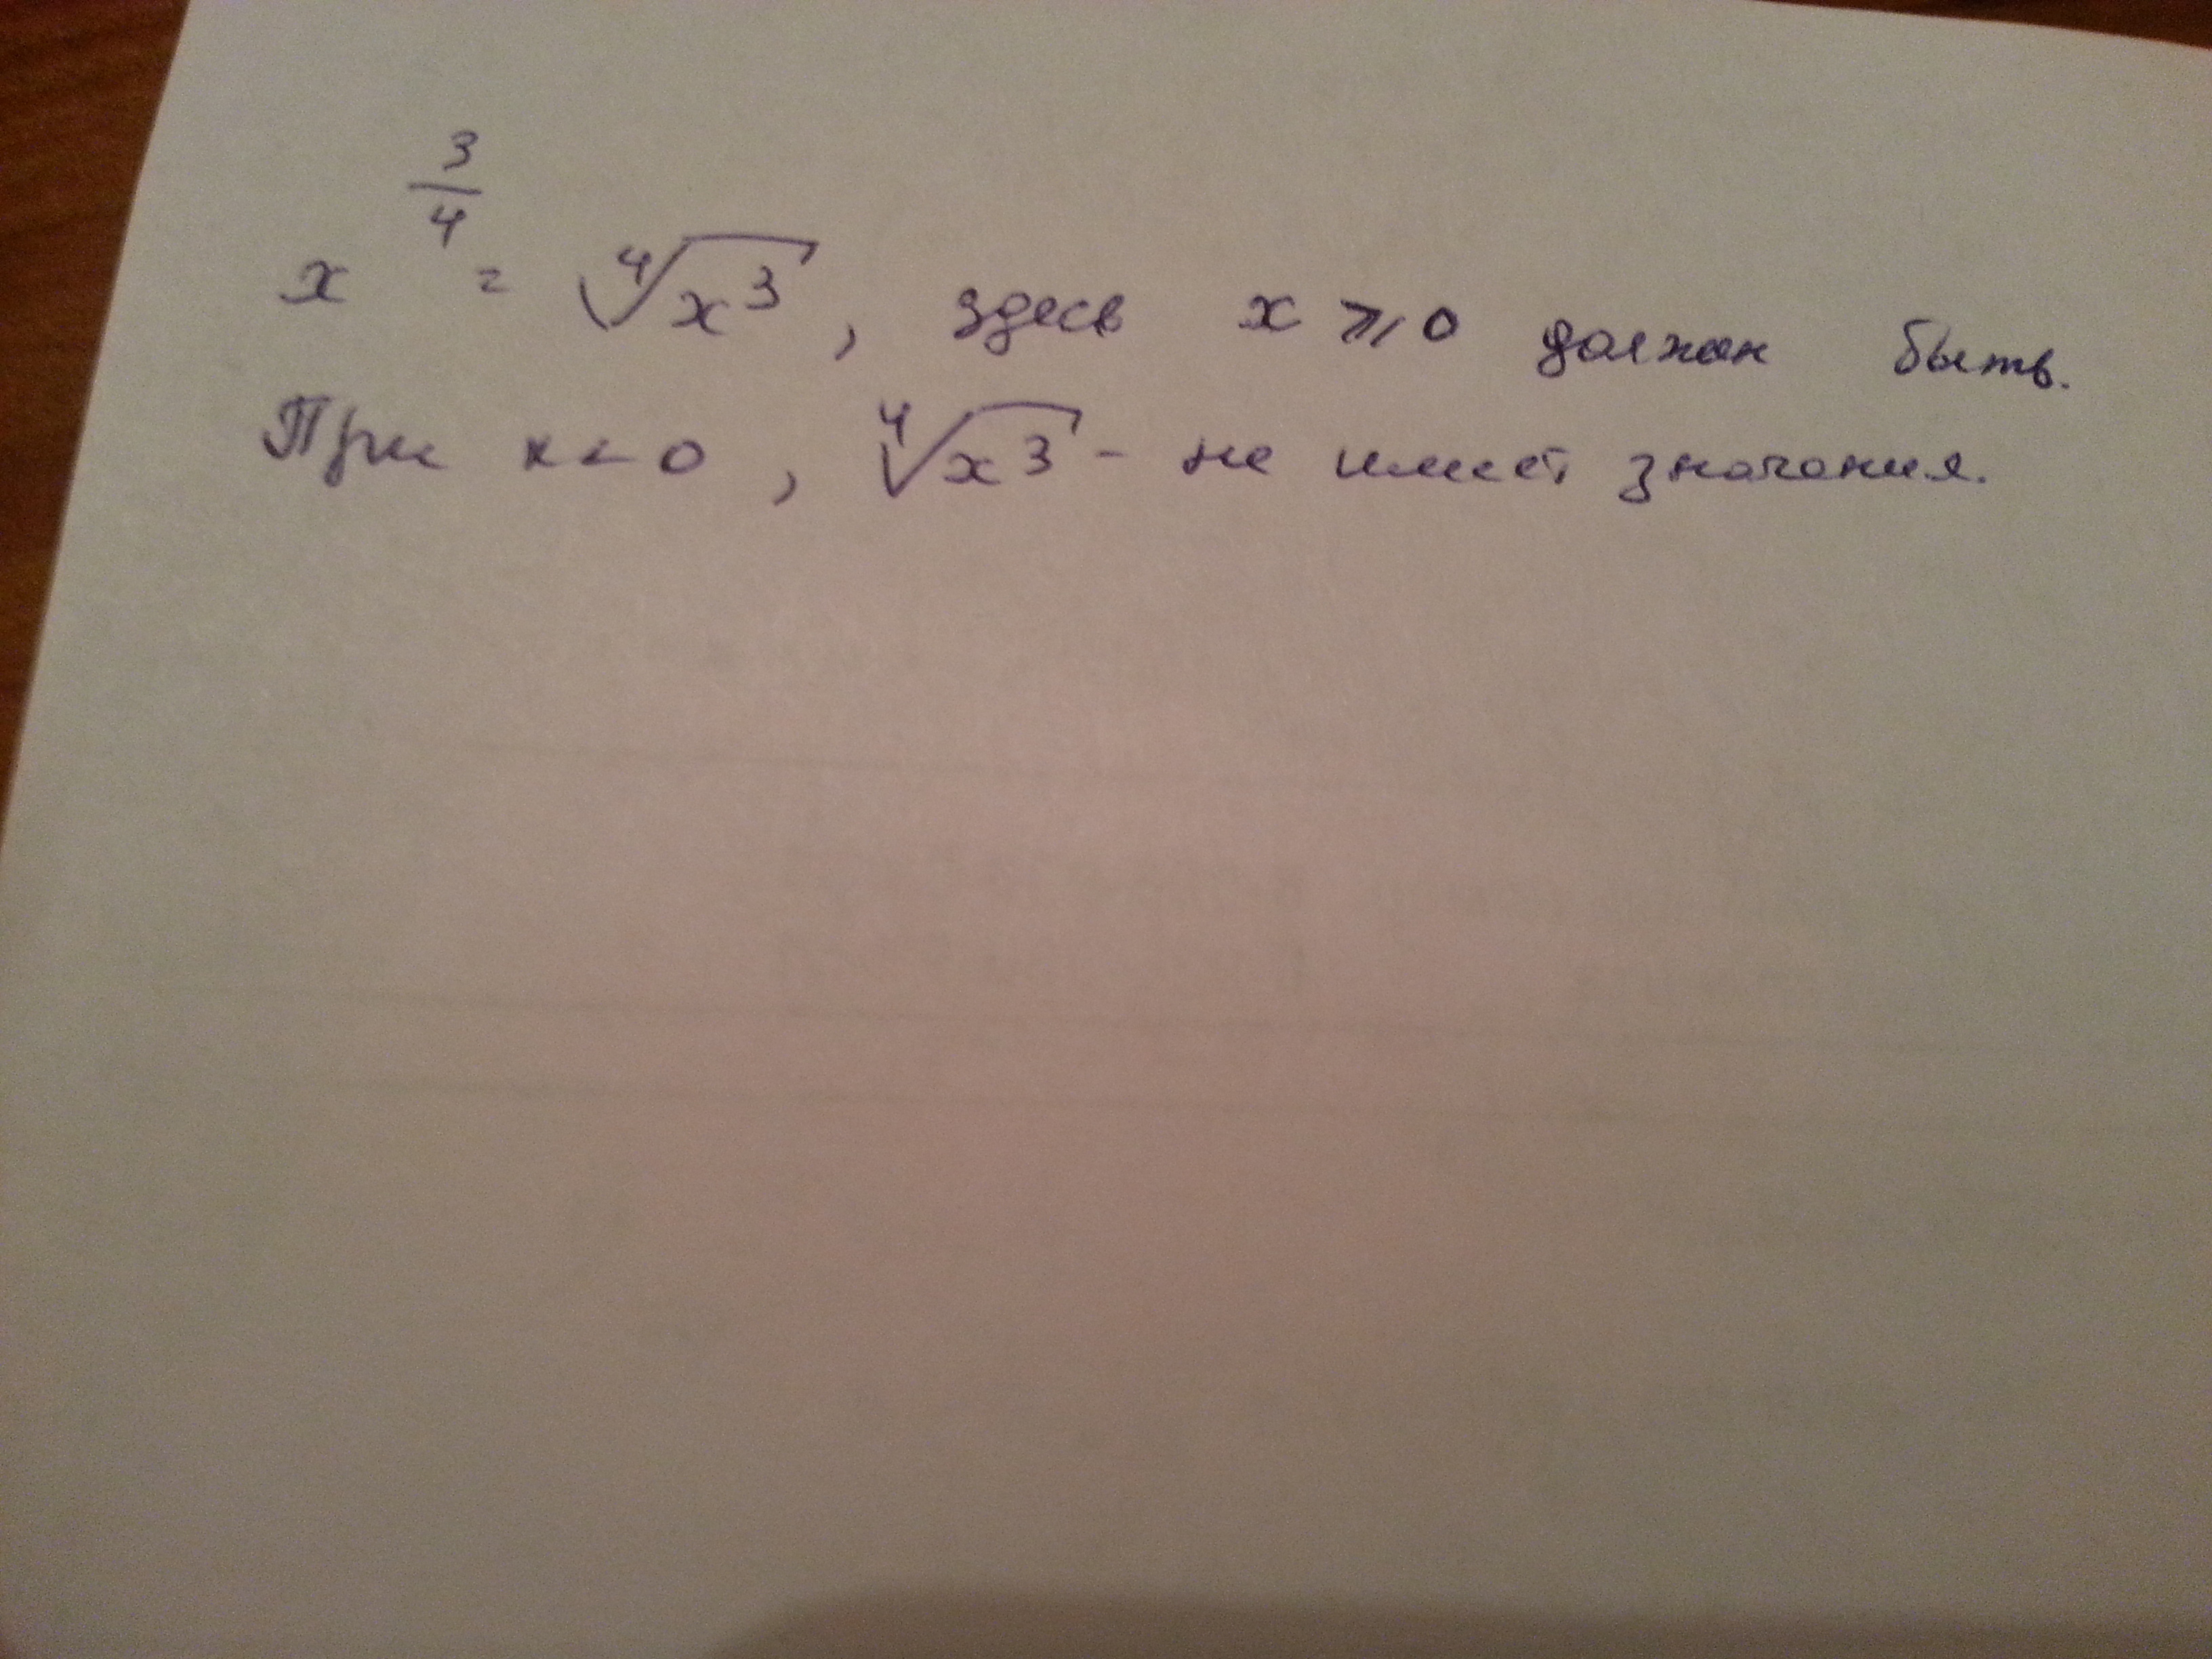 x^{3/4} = \sqrt[4]{x^3}, здесь x ⩾ 0 должен быть.
При x < 0, \sqrt[4]{x^3} - не имеет значения.